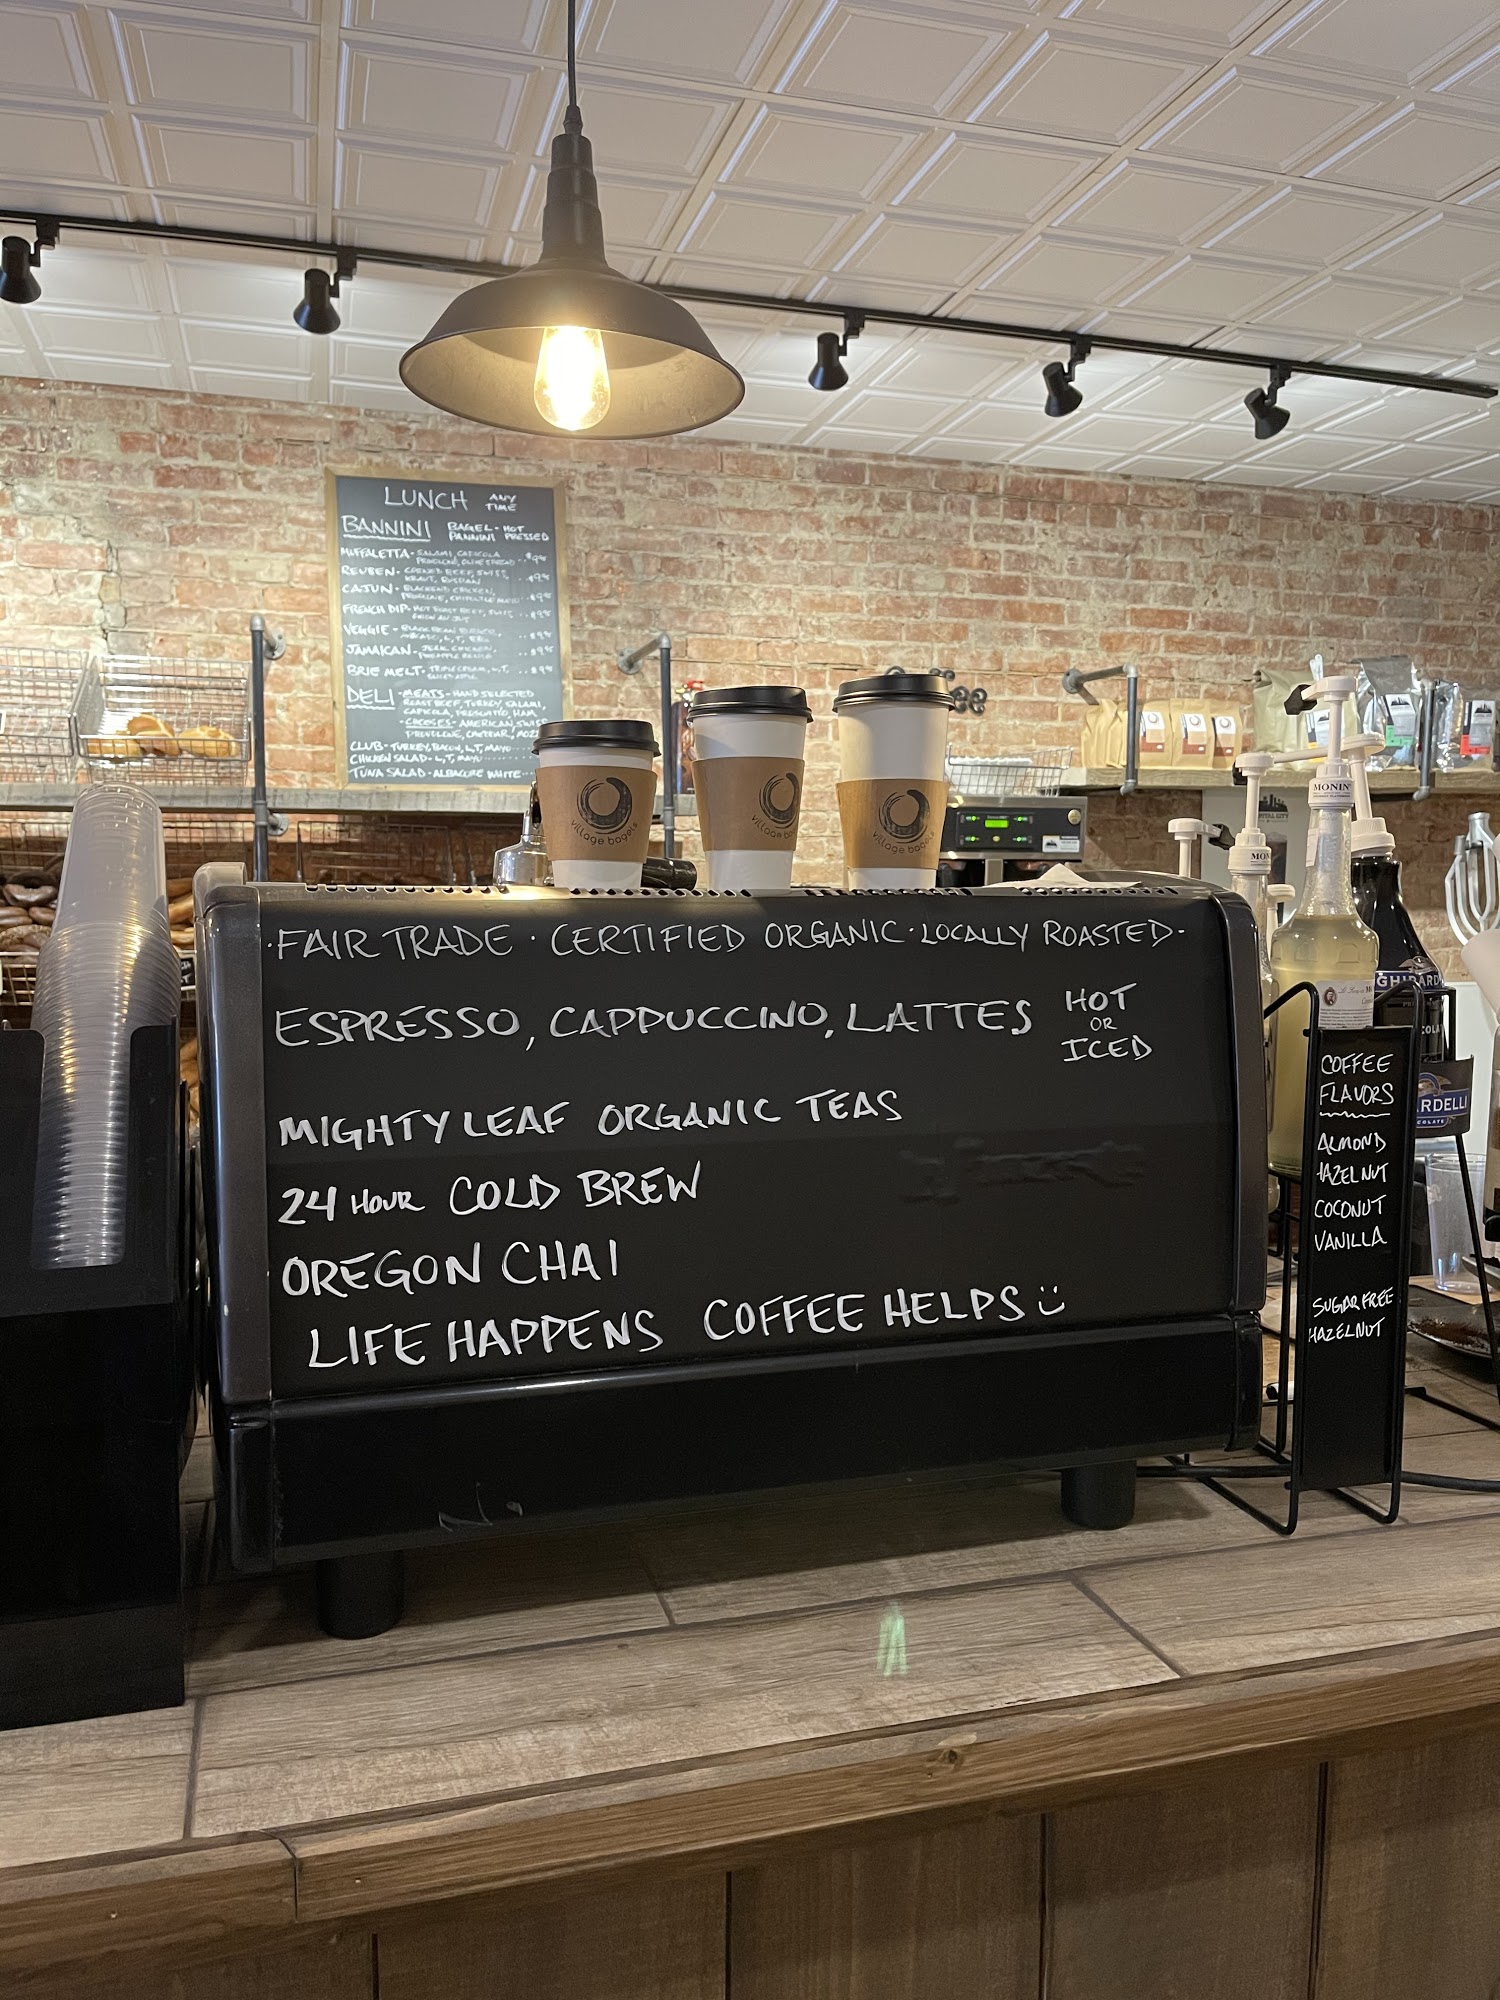 LUNCH ANY TIME
BANNINI BAGEL - HOT
PANNINI PRESSED
MUFFALETTA - SALAMI, CAPICOLA
PROVOLONE, OLIVE SPREAD
REUBEN - CORNED BEEF, SWISS,
KRAUT, RUSSIAN
CAJUN - BLACKENED CHICKEN,
FRENCH DIP - HOT ROAST BEEF, SWISS
VEGGIE - BLACK BEAN BURGER,
JAMAICAN - JERK CHICKEN,
BRIE MELT - TRIPLE CREAM, L, T,
DELI - MEATS - HAND SELECTED
ROAST BEEF, TURKEY, SALAMI,
CAPICOLA, PROSCIUTTO, HAM
- CHEESES - AMERICAN, SWISS
PROVOLONE, CHEDDAR, MOZZ
CLUB - TURKEY, BACON, L, T, MAYO
CHICKEN SALAD - L, T, MAYO
TUNA SALAD - ALBACORE WHITE
village bagels
village bagels
village bagels
MONIN
MON
GHIRARD
COLA
ARDELLI
CHOCOLATE
·FAIR TRADE · CERTIFIED ORGANIC · LOCALLY ROASTED·
ESPRESSO, CAPPUCCINO, LATTES HOT OR ICED
MIGHTY LEAF ORGANIC TEAS
24 HOUR COLD BREW
OREGON CHAI
LIFE HAPPENS COFFEE HELPS
COFFEE
FLAVORS
ALMOND
HAZELNUT
COCONUT
VANILLA
SUGAR FREE
HAZELNUT